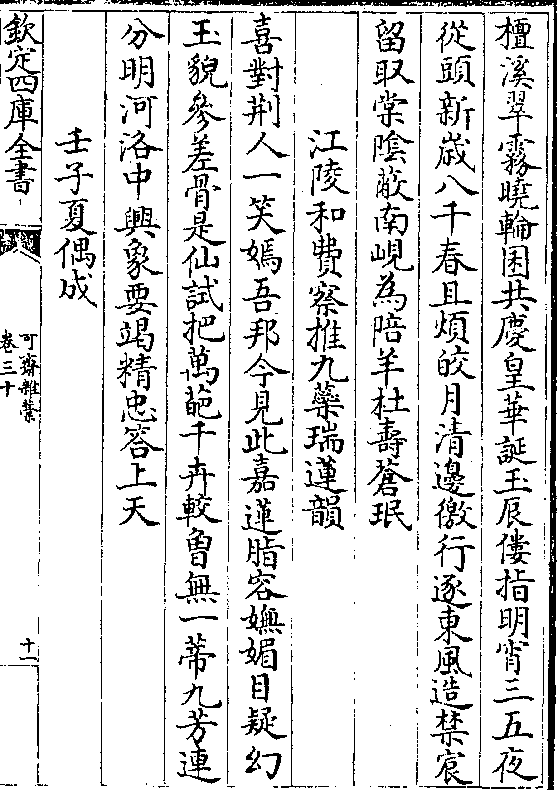 檀溪翠霧曉輪囷共慶皇華誕玉辰僂指明宵三五夜
從頭新歲八千春且煩皎月清邊徼行逐東風造禁宸
留取棠陰蔽南峴為陪羊杜壽蒼珉
江陵和費察推九蘂瑞蓮韻
喜對荆人一笑嫣吾邦今見此嘉蓮脂容嫵媚目疑幻
玉貌參差骨是仙試把萬葩千卉較曾無一蔕九芳連
分明河洛中興象要竭精忠答上天
壬子夏偶成
欽定四庫全書
可齋雜藁
卷三十
十一